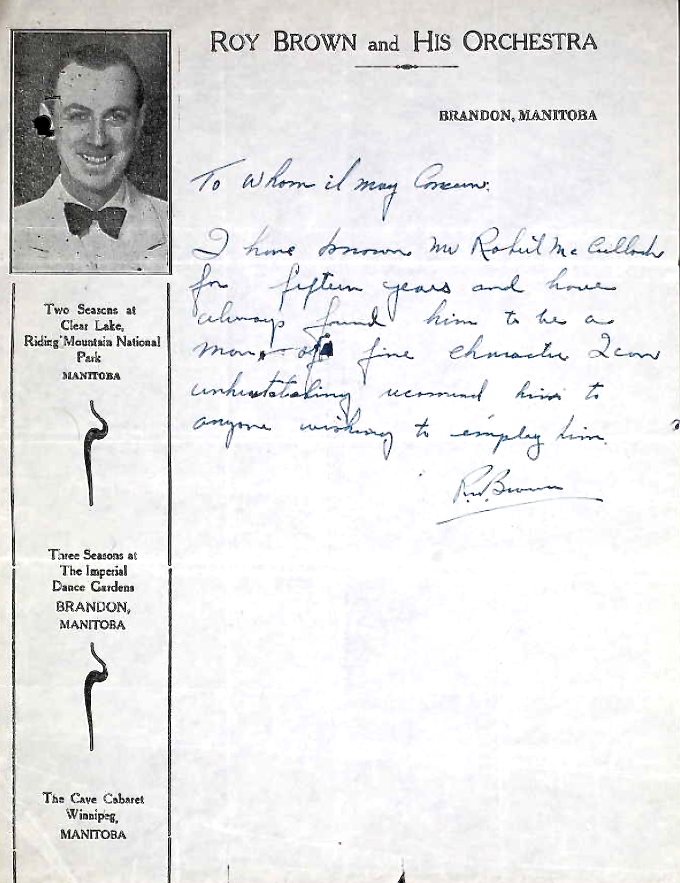 ROY BROWN and HIS ORCHESTRA
BRANDON, MANITOBA
To Whom it may Concern:
I have known Mr Robert McCulloch
for fifteen years and have
always found him to be a
man of fine character I can
unhesitatingly recomend him to
anyone wishing to employ him.
R.W. Brown
Two Seasons at
Clear Lake,
Riding Mountain National
Park
MANITOBA
Three Seasons at
The Imperial
Dance Gardens
BRANDON,
MANITOBA
The Cave Cabaret
Winnipeg,
MANITOBA